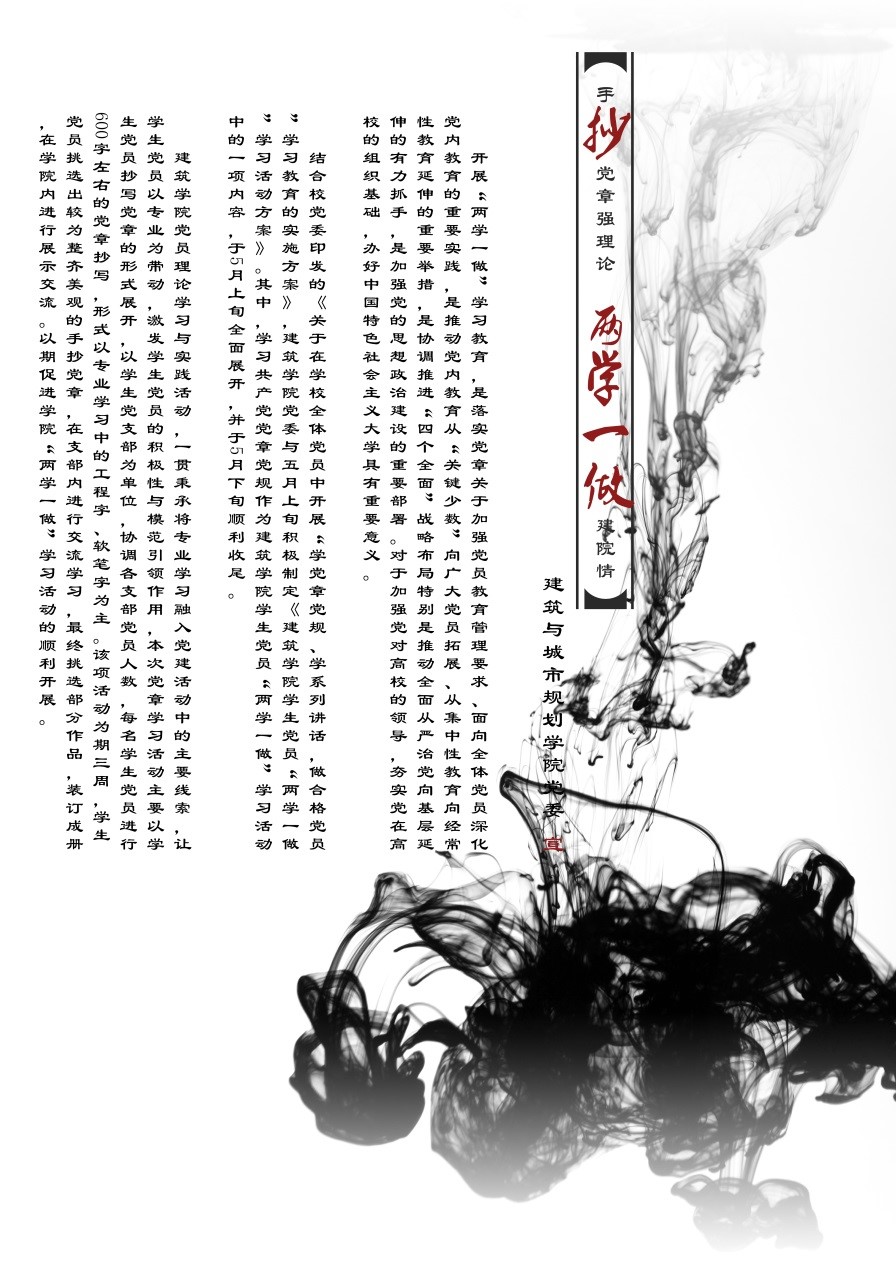 手抄党章强理论 两学一做建院情
建筑与城市规划学院党委 宣
开展“两学一做”学习教育，是落实党章关于加强党员教育管理要求、面向全体党员深化
党内教育的重要实践，是推动党内教育从“关键少数”向广大党员拓展、从集中性教育向经常
性教育延伸的重要举措，是协调推进“四个全面”战略布局特别是推动全面从严治党向基层延
伸的有力抓手，是加强党的思想政治建设的重要部署。对于加强党对高校的领导，夯实党在高
校的组织基础，办好中国特色社会主义大学具有重要意义。
结合校党委印发的《关于在学校全体党员中开展“学党章党规、学系列讲话，做合格党员
”学习教育的实施方案》，建筑学院党委与五月上旬积极制定《建筑学院学生党员“两学一做
”学习活动方案》。其中，学习共产党党章党规作为建筑学院学生党员“两学一做”学习活动
中的一项内容，于5月上旬全面展开，并于5月下旬顺利收尾。
建筑学院党员理论学习与实践活动，一贯秉承将专业学习融入党建活动中的主要线索，让
学生党员以专业为带动，激发学生党员的积极性与模范引领作用，本次党章学习活动主要以学
生党员抄写党章的形式展开，以学生党支部为单位，协调各支部党员人数，每名学生党员进行
600字左右的党章抄写，形式以专业学习中的工程字、软笔字为主。该项活动为期三周，学生
党员挑选出较为整齐美观的手抄党章，在支部内进行交流学习，最终挑选部分作品，装订成册
，在学院内进行展示交流。以期促进学院“两学一做”学习活动的顺利开展。